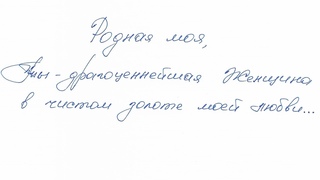 Родная моя,
Ты - драгоценнейшая Женщина
в чистом золоте моей любви...